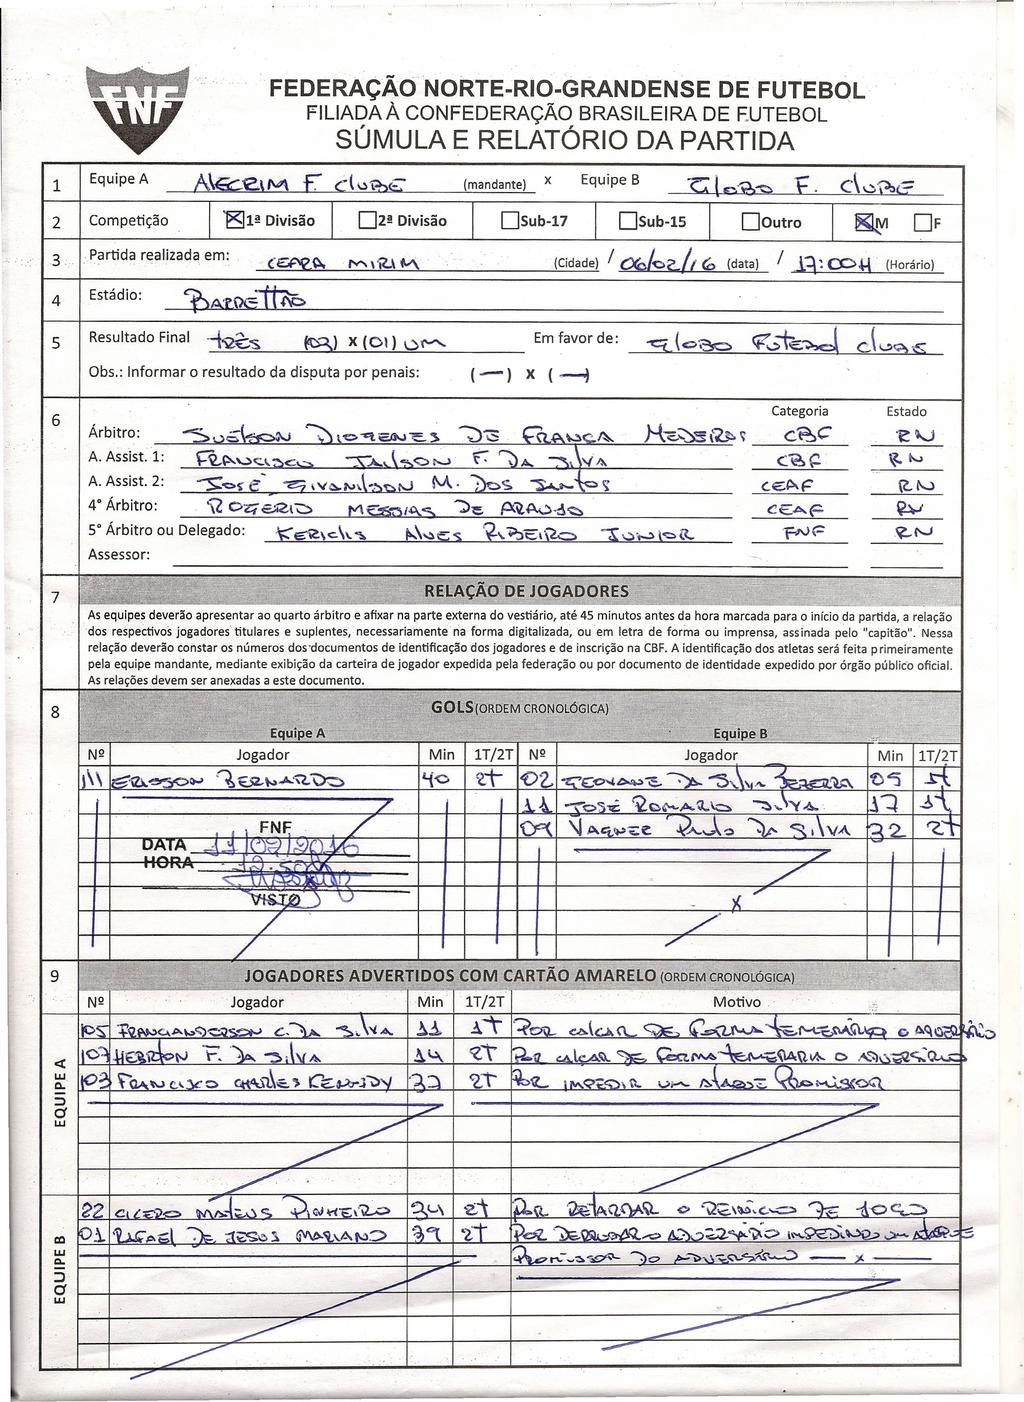 FNF
FEDERAÇÃO NORTE-RIO-GRANDENSE DE FUTEBOL
FILIADA À CONFEDERAÇÃO BRASILEIRA DE FUTEBOL
SÚMULA E RELATÓRIO DA PARTIDA
1 Equipe A ALECRIM F. CLUBE (mandante) x Equipe B GLOBO F. CLUBE
2 Competição ☒1ª Divisão ☐2ª Divisão ☐Sub-17 ☐Sub-15 ☐Outro ☒M ☐F
3 Partida realizada em: CEARA MIRIM (Cidade) / 06/02/16 (data) / 17:00H (Horário)
4 Estádio: BARRETTÃO
5 Resultado Final três (03) X (01) UM Em favor de: GLOBO FUTEBOL CLUBE
Obs.: Informar o resultado da disputa por penais: ( — ) x ( — )
6 Categoria Estado
Árbitro: SUELSON DIOGENES DE FRANÇA MEDEIROS CBF RN
A. Assist. 1: FRANCISCO JAILSON F. DA SILVA CBF RN
A. Assist. 2: JOSÉ GIVANILSON M. DOS SANTOS CEAF RN
4° Árbitro: ROGERIO MESSIAS DE ARAUJO CEAF RN
5° Árbitro ou Delegado: KERICLIS ALVES RIBEIRO JUNIOR FNF RN
Assessor:
7 RELAÇÃO DE JOGADORES
As equipes deverão apresentar ao quarto árbitro e afixar na parte externa do vestiário, até 45 minutos antes da hora marcada para o início da partida, a relação
dos respectivos jogadores titulares e suplentes, necessariamente na forma digitalizada, ou em letra de forma ou imprensa, assinada pelo "capitão". Nessa
relação deverão constar os números dos documentos de identificação dos jogadores e de inscrição na CBF. A identificação dos atletas será feita primeiramente
pela equipe mandante, mediante exibição da carteira de jogador expedida pela federação ou por documento de identidade expedido por órgão público oficial.
As relações devem ser anexadas a este documento.
8 GOLS (ORDEM CRONOLÓGICA)
Equipe A Equipe B
Nº Jogador Min 1T/2T Nº Jogador Min 1T/2T
111 ERISSON BERNARDO 40 2T 02 GEOVANE DA SILVA BEZERRA 05 1T
11 JOSÉ ROMARIO SILVA 17 1T
09 VAGNER PAULO DA SILVA 32 2T
FNF
DATA 11/02/2016
HORA 12:50
VISTO
X
9 JOGADORES ADVERTIDOS COM CARTÃO AMARELO (ORDEM CRONOLÓGICA)
Nº Jogador Min 1T/2T Motivo
EQUIPE A
105 FRANCIANDERSON C. DA SILVA 11 1T POR CALÇAR DE FORMA TEMERÁRIA O ADVERSÁRIO
107 HEBRTON F. DA SILVA 14 2T POR CALÇAR DE FORMA TEMERARIA O ADVERSÁRIO
103 FRANCISCO CHARLES KENNIDY 37 2T POR IMPEDIR UM ATAQUE PROMISSOR
EQUIPE B
22 CICERO MATEUS PINHEIRO 34 2T POR RETARDAR O REINICIO DE JOGO
01 RAFAEL DE JESUS MARIANO 39 2T POR DERRUBAR O ADVERSÁRIO IMPEDINDO UM ATAQUE
PROMISSOR DO ADVERSÁRIO — x —